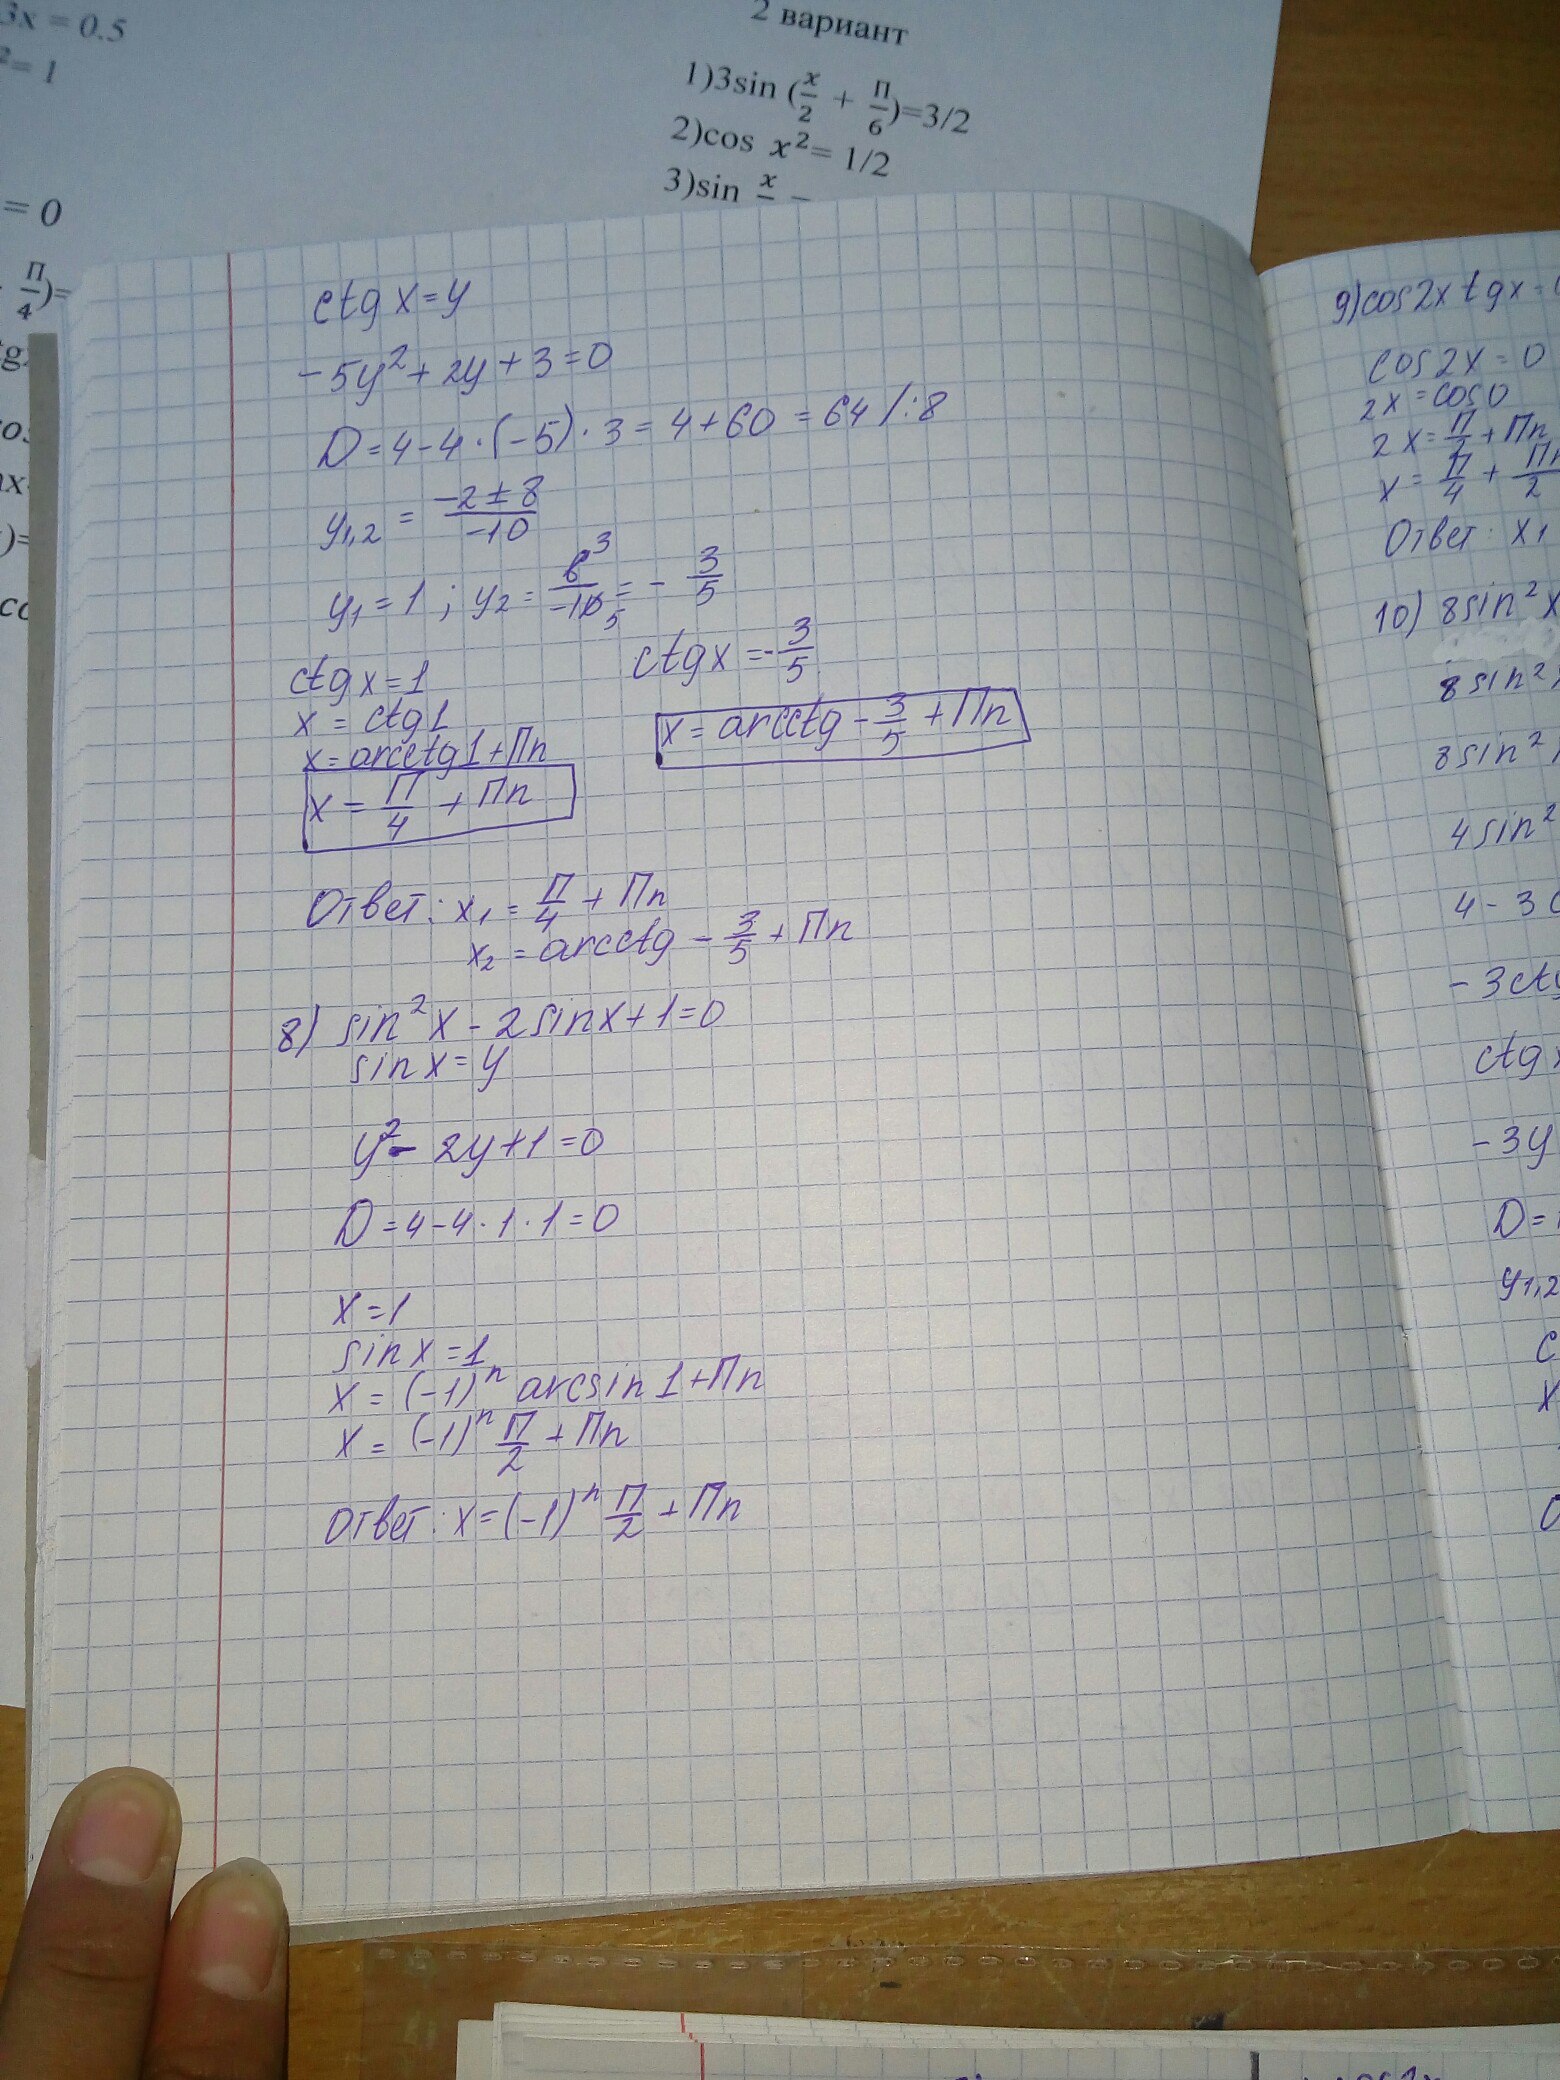 3x = 0.5
² = 1
= 0
π/4)=
2 вариант
1)3sin (x/2 + π/6)=3/2
2)cos x²= 1/2
3)sin x
ctg x = y
-5y² + 2y + 3 = 0
D = 4 - 4 · (-5) · 3 = 4 + 60 = 64 /:8
y1,2 = (-2 ± 8)/(-10)
y1 = 1 ; y2 = 6 3/-10 5 = - 3/5
ctg x = 1
x = ctg 1
x = arcctg 1 + Пn
x = П/4 + Пn
ctg x = - 3/5
x = arcctg - 3/5 + Пn
Ответ: x1 = П/4 + Пn
x2 = arcctg - 3/5 + Пn
8) sin²x - 2 sin x + 1 = 0
sin x = y
y² - 2y + 1 = 0
D = 4 - 4 · 1 · 1 = 0
x = 1
sin x = 1
x = (-1)ⁿ arcsin 1 + Пn
x = (-1)ⁿ П/2 + Пn
Ответ: x = (-1)ⁿ П/2 + Пn
9) cos2x tgx =
cos 2x = 0
2x = cos 0
2x = П/2 + Пn
x = П/4 + Пn/2
Ответ: x1
10) 8sin²x
8 sin²
8 sin²
4 sin²
4 - 3
- 3ctg
ctg x
- 3y
D =
y1,2